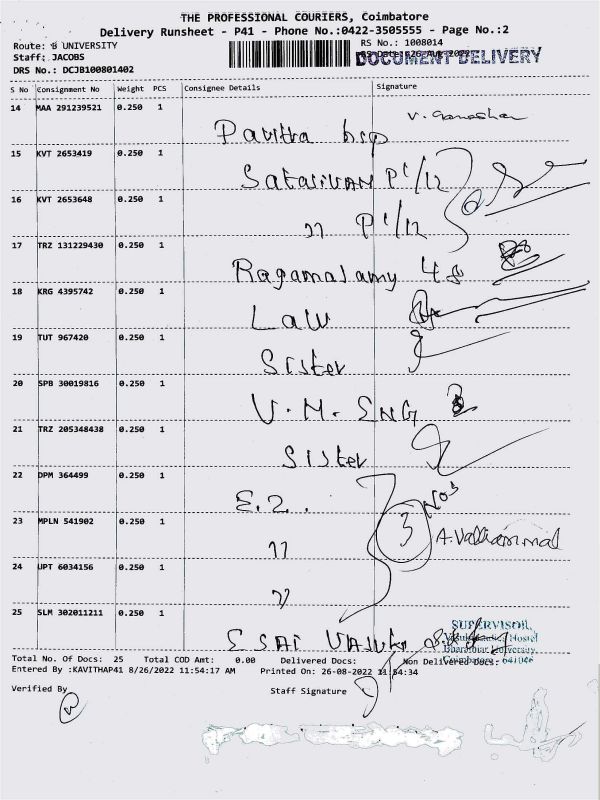 THE PROFESSIONAL COURIERS, Coimbatore
Delivery Runsheet - P41 - Phone No.:0422-3505555 - Page No.:2
Route: B UNIVERSITY
RS No.: 1008014
Staff: JACOBS
DOCUMENT DELIVERY
DRS No.: DCJB100801402
S No Consignment No Weight PCS Consignee Details Signature
14 MAA 291239521 0.250 1
Pavitra hsp
15 KVT 2653419 0.250 1
16 KVT 2653648 0.250 1
17 TRZ 131229430 0.250 1
18 KRG 4395742 0.250 1
Law
19 TUT 967420 0.250 1
Sister
20 SPB 30019816 0.250 1
V.M. ENG
21 TRZ 205348438 0.250 1
Sister
22 DPM 364499 0.250 1
E.2. 3 Nos
23 MPLN 541902 0.250 1
11 A.Valliammal
24 UPT 6034156 0.250 1
25 SLM 302011211 0.250 1
SUPERVISOR,
Hostel
Bharathiar University
Coimbatore - 641046
Total No. Of Docs: 25 Total COD Amt: 0.00 Delivered Docs: Non Delivered Docs:
Entered By :KAVITHAP41 8/26/2022 11:54:17 AM Printed On: 26-08-2022 11:54:34
Verified By Staff Signature